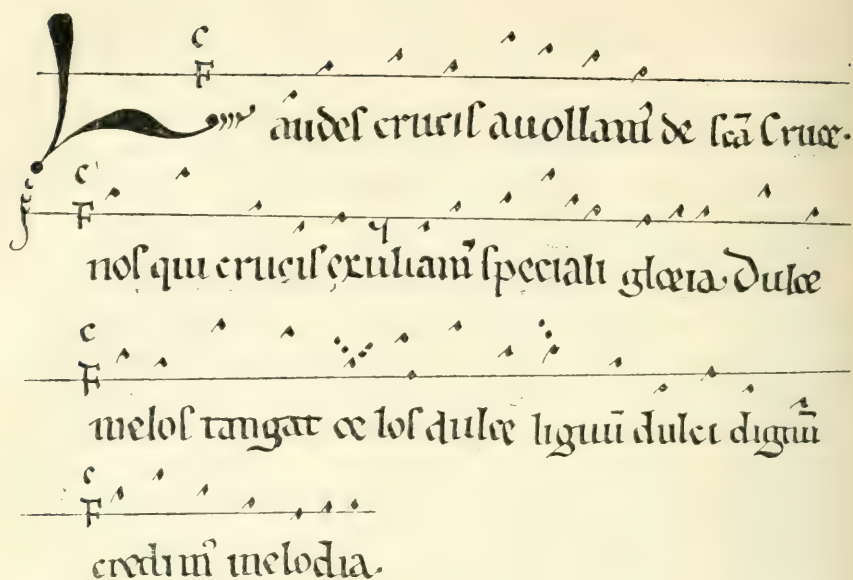 C
F
Laudeſ cruciſ attollam᾽ de ſcā Cruce.
C
F
noſ qui cruciſ exultam᾽ ſpeciali gloria. Dulce
C
F
meloſ tangat ce loſ dulce lignū dulci dignū
C
F
credim᾽ melodia.